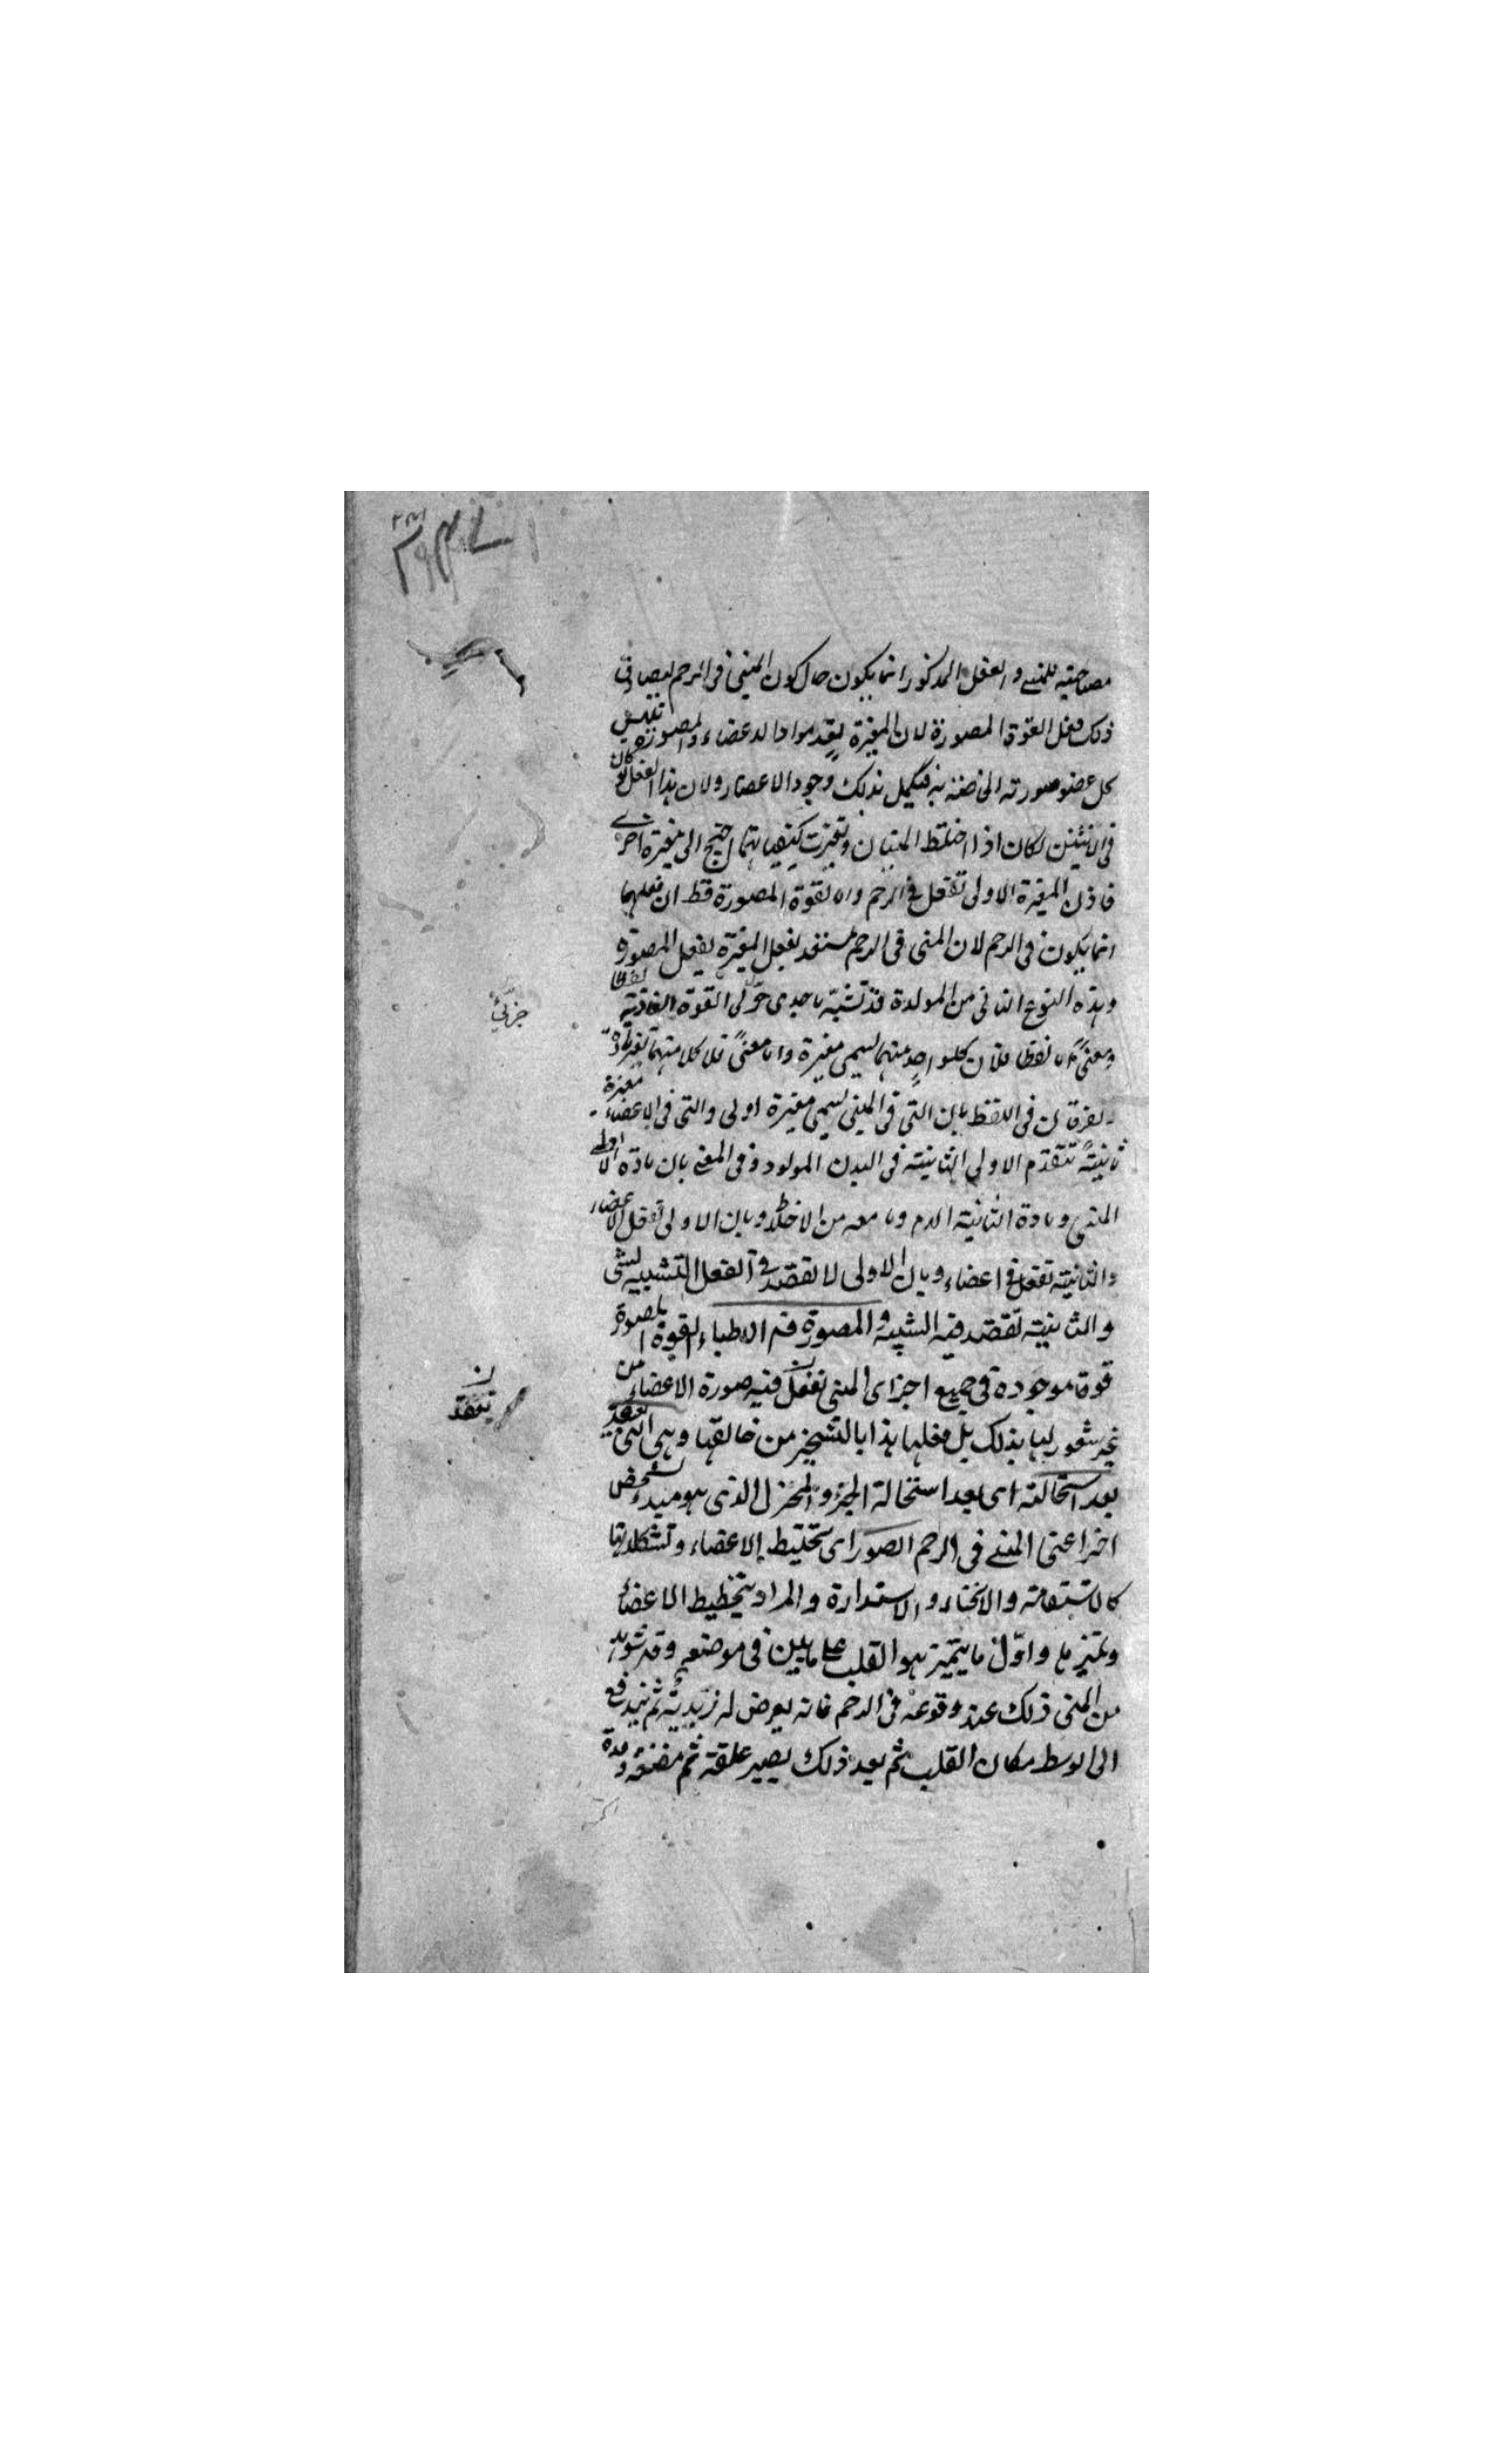 مصاحبته للمنى والفعل المذكور انما يكون حال كون المنى فى الرحم ليصادف
ذلك فعل القوة المصورة لان المغيرة تعد مواد الاعضاء والمصورة تلبس
كل عضو صورته الخاصة به فيكمل بذلك وجود الاعضاء ولان هذا الفعل لو كان
فى الانثيين لكان اذا اختلط المنيان وتغيرت كيفياتهما احتيج الى مغيرة اخرى
فاذن المغيرة الاولى تفعل فى الرحم واما القوة المصورة فظ ان فعلها
انما يكون فى الرحم لان المنى فى الرحم مستعد لفعل المغيرة لفعل المصورة
وهذه النوع الثانى من المولدة قد تشبه باحدى جزئى القوة الغاذية لفظا
ومعنى اما لفظا فلان كلواحد منهما يسمى مغيرة واما معنى فلان كلا منهما تغير مادة
ويفرقان فى اللفظ بان التى فى المنى يسمى مغيرة اولى والتى فى الاعضاء مغيرة
ثانية تتقدم الاولى الثانية فى البدن المولود وفى المعنى بان مادة الاولى
المنى ومادة الثانية الدم وما معه من الاخلاط وبان الاولى تفعل الاعضاء
والثانية تفعل فى اعضاء وبان الاولى لا تقصد فى الفعل التشبيه لشئ
والثانية تقصد فيه التشبيه والمصورة فهم الاطباء القوة المصورة
قوة موجودة فى جميع اجزاى المنى تفعل فيه صورة الاعضاء من
غير شعور لها بذلك بل فعلها هذا بالتسخير من خالقها وهى التى تفيد
بعد استحالته اى بعد استحالة الجزء والمختزل الذى هو مبدء شخص
اخر اعنى المنى فى الرحم الصور اى تخطيط الاعضاء وتشكلاتها
كالاستقامة والانحناء والاستدارة والمراد بتخطيط الاعضاء
وتميزها واول ما يتميز هو القلب على ما بين فى موضعه وقد شوهد
من المنى ذلك عند وقوعه فى الرحم فانه يعرض له زبدية ثم يندفع
الى الوسط مكان القلب ثم بعد ذلك يصير علقة ثم مضغة ومدة
جزئى